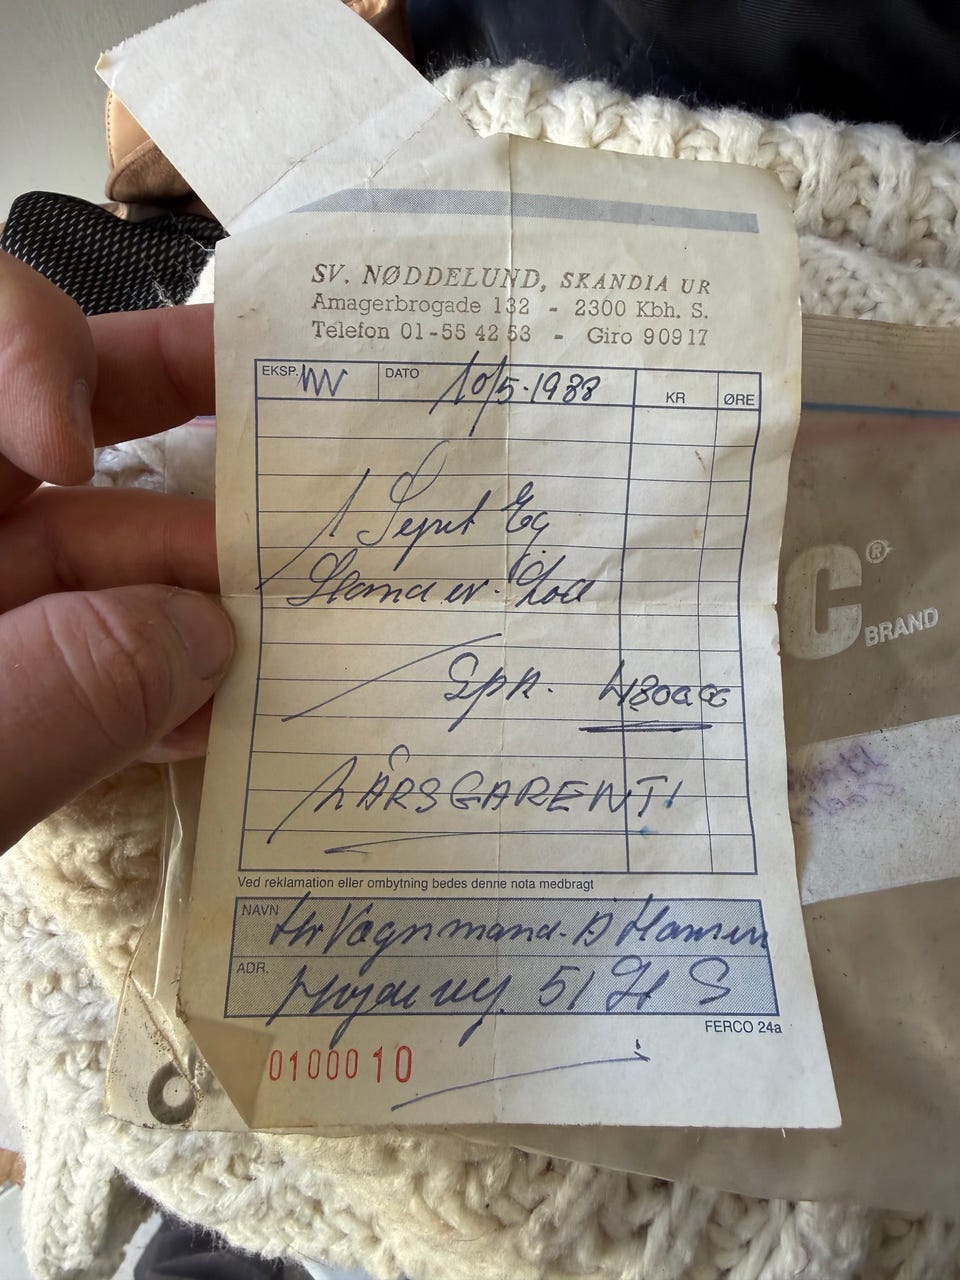 SV. NØDDELUND, SKANDIA UR
Amagerbrogade 132 - 2300 Kbh. S.
Telefon 01-55 42 53 - Giro 90917
EKSP. DATO 10/5-1988 KR ØRE
1 Eg
Spr. 4800
ÅRSGARENTI
Ved reklamation eller ombytning bedes denne nota medbragt
NAVN Hr Vognmand. Hansen
ADR. 51 S
FERCO 24a
0100010
C®
BRAND